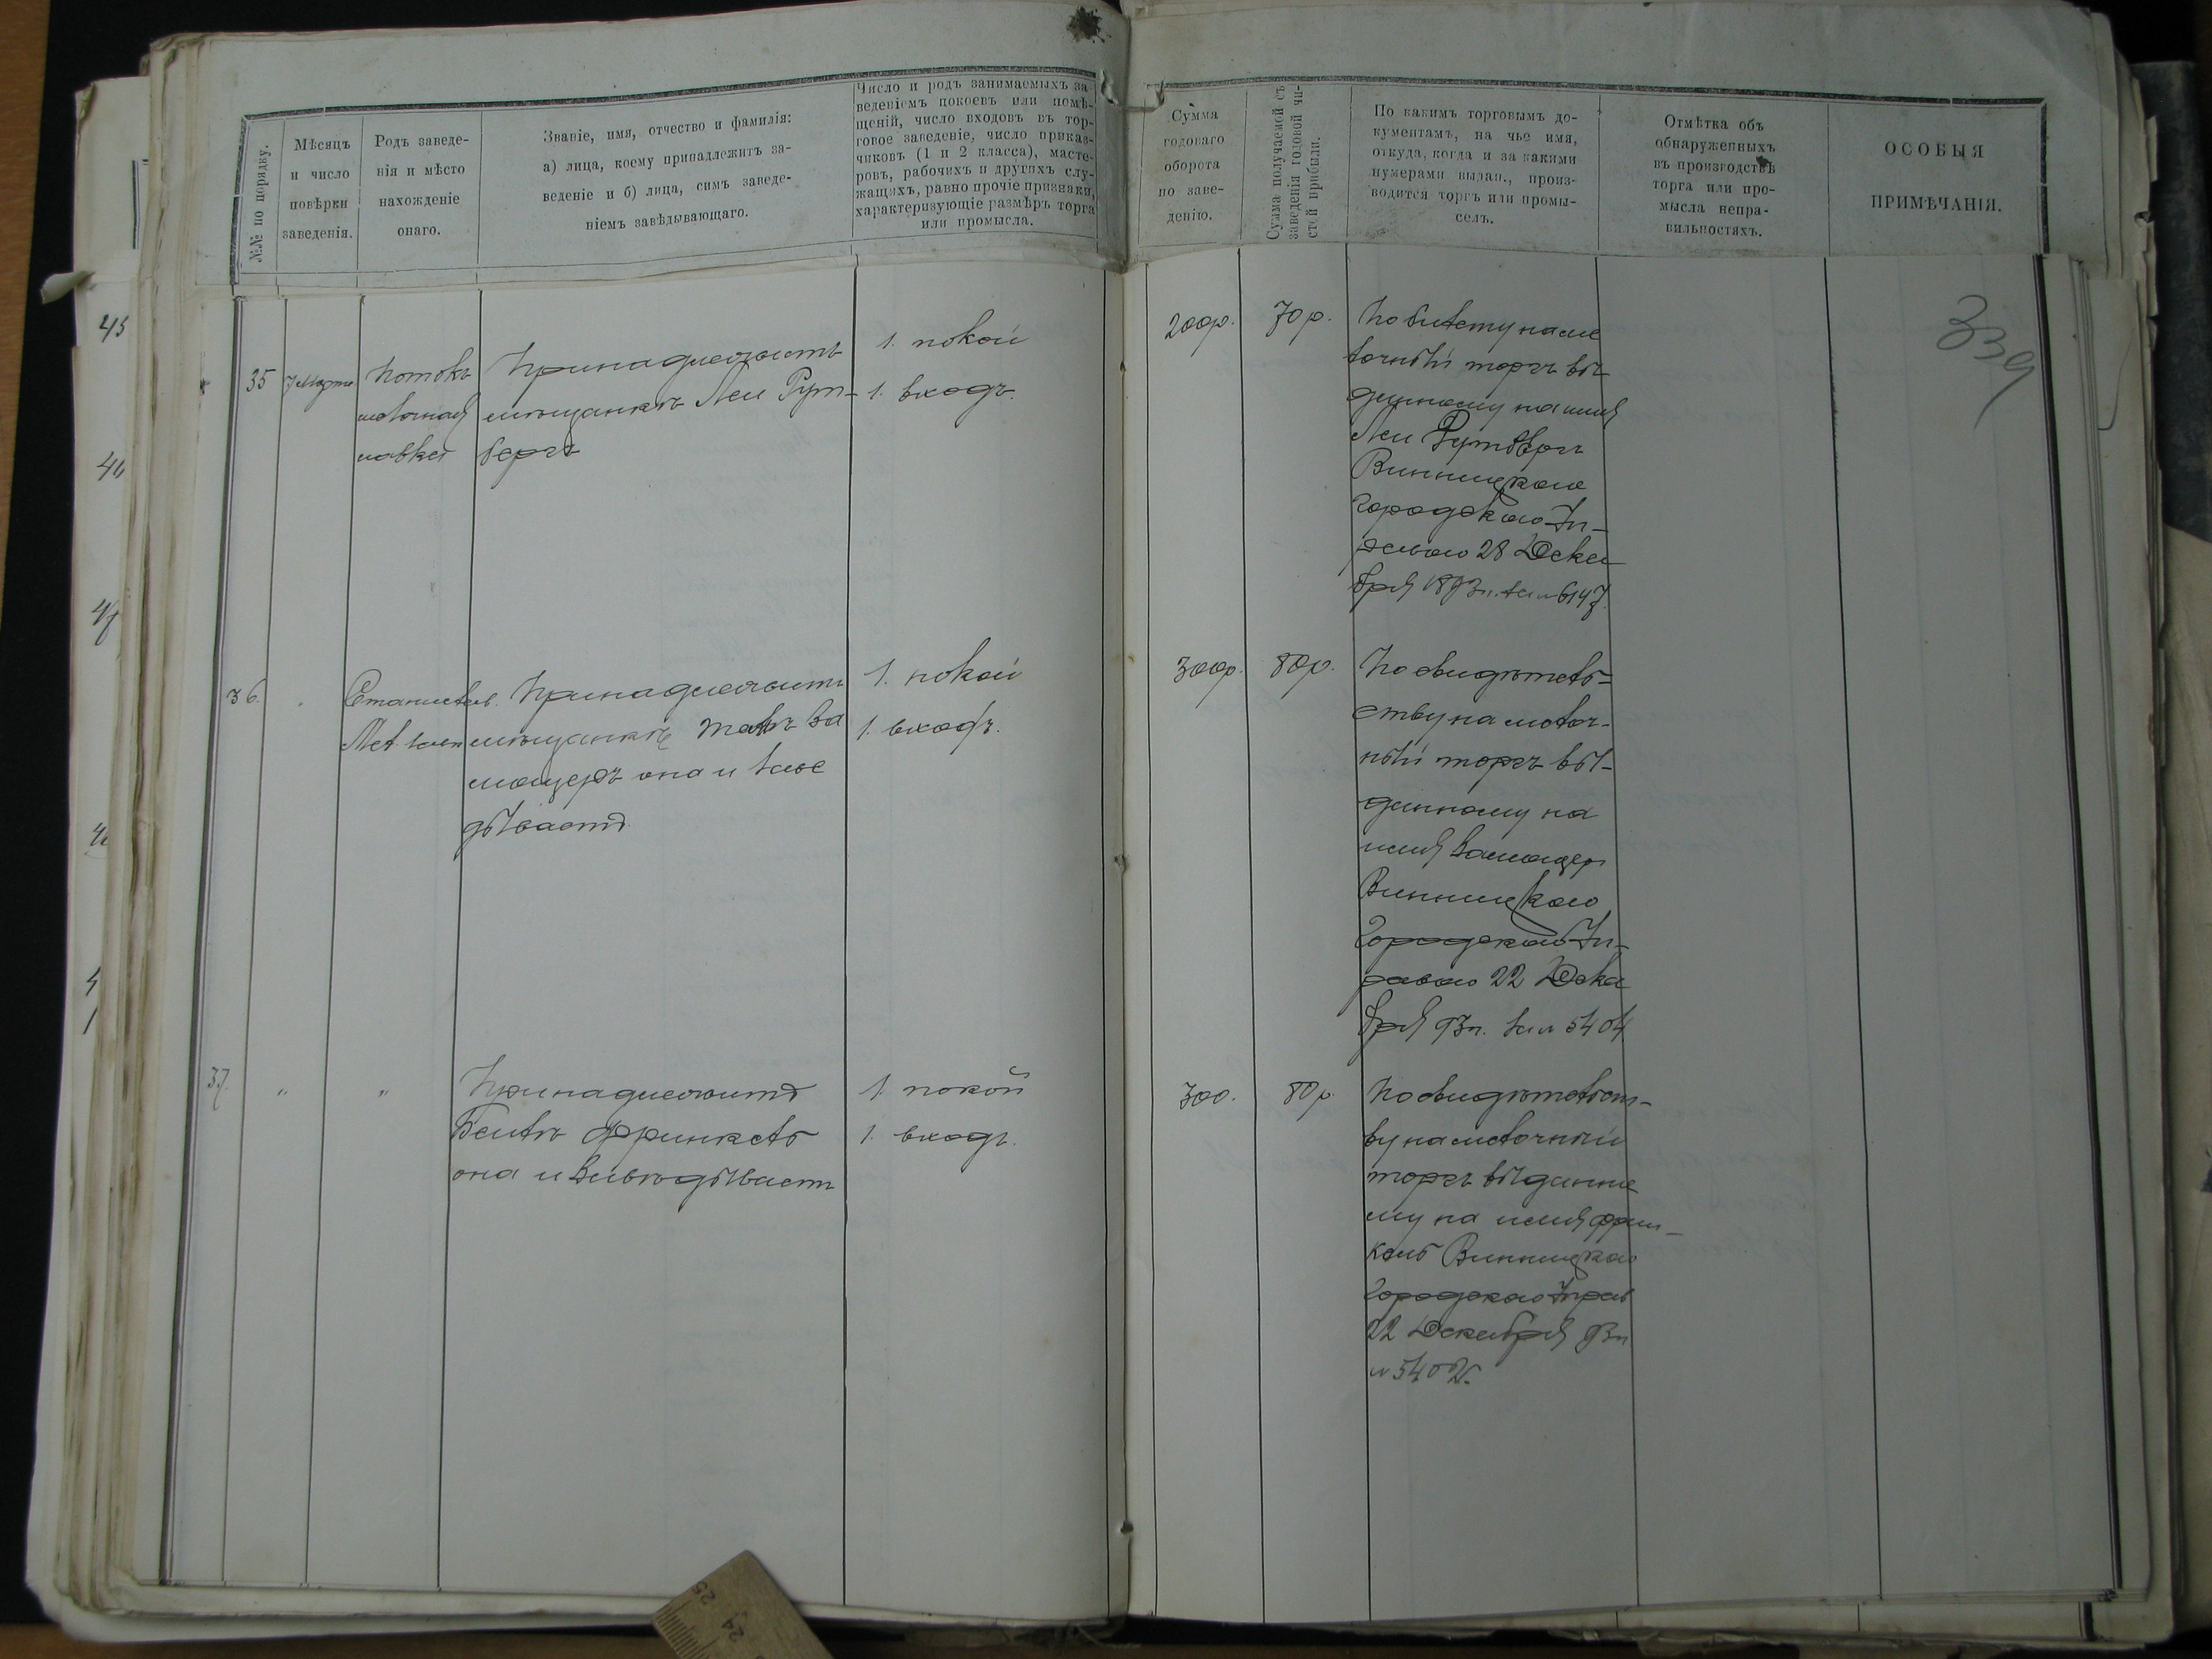 №№ по порядку.
Мѣсяцъ
и число
повѣрки
заведенія.
Родъ заведе-
нія и мѣсто
нахожденіе
онаго.
Званіе, имя, отчество и фамилія:
а) лица, коему принадлежитъ за-
веденіе и б) лица, симъ заведе-
ніемъ завѣдывающаго.
Число и родъ занимаемыхъ за-
веденіемъ покоевъ или помѣ-
щеній, число входовъ въ тор-
говое заведеніе, число приказ-
чиковъ (1 и 2 класса), масте-
ровъ, рабочихъ и другихъ слу-
жащихъ, равно прочіе признаки,
характеризующіе размѣръ торга
или промысла.
Сумма
годоваго
оборота
по заве-
денію.
Сумма получаемой съ
заведенія годовой чи-
стой прибыли.
По какимъ торговымъ до-
кументамъ, на чье имя,
откуда, когда и за какими
нумерами выдан., произ-
водится торгъ или промы-
селъ.
Отмѣтка объ
обнаруженныхъ
въ производствѣ
торга или про-
мысла непра-
вильностяхъ.
ОСОБЫЯ
ПРИМѢЧАНІЯ.
339
45
35
7 Марта
мелочная
лавка
Принадлежитъ
мѣщанкѣ Леи Рут-
бергъ
1. покой
1. входъ.
200р.
70р.
По билету на ме
лочный торгъ вы
данному на имя
Леи Рутбергъ
Винницкою
Городскою Уп-
равою 28 Дека
бря 1893 г. за № 6147.
36.
Принадлежитъ
мѣщанкѣ
она и завѣ
дываетъ
1. покой
1. входъ.
300р.
80р.
По свидѣтель-
ству на мелоч-
ный торгъ вы-
данному на
имя
Винницкою
Городскою Уп-
равою 22 Дека
бря 93 г. за № 5404
37.
"
"
Принадлежитъ
Бейлѣ Фринкель
она и завѣдываетъ
1. покой
1. входъ.
300.
80р
По свидѣтельст-
ву на мелочный
торгъ выданно
му на имя Фрин-
кель Винницкою
Городскою Управ
22 Декабря 93 г